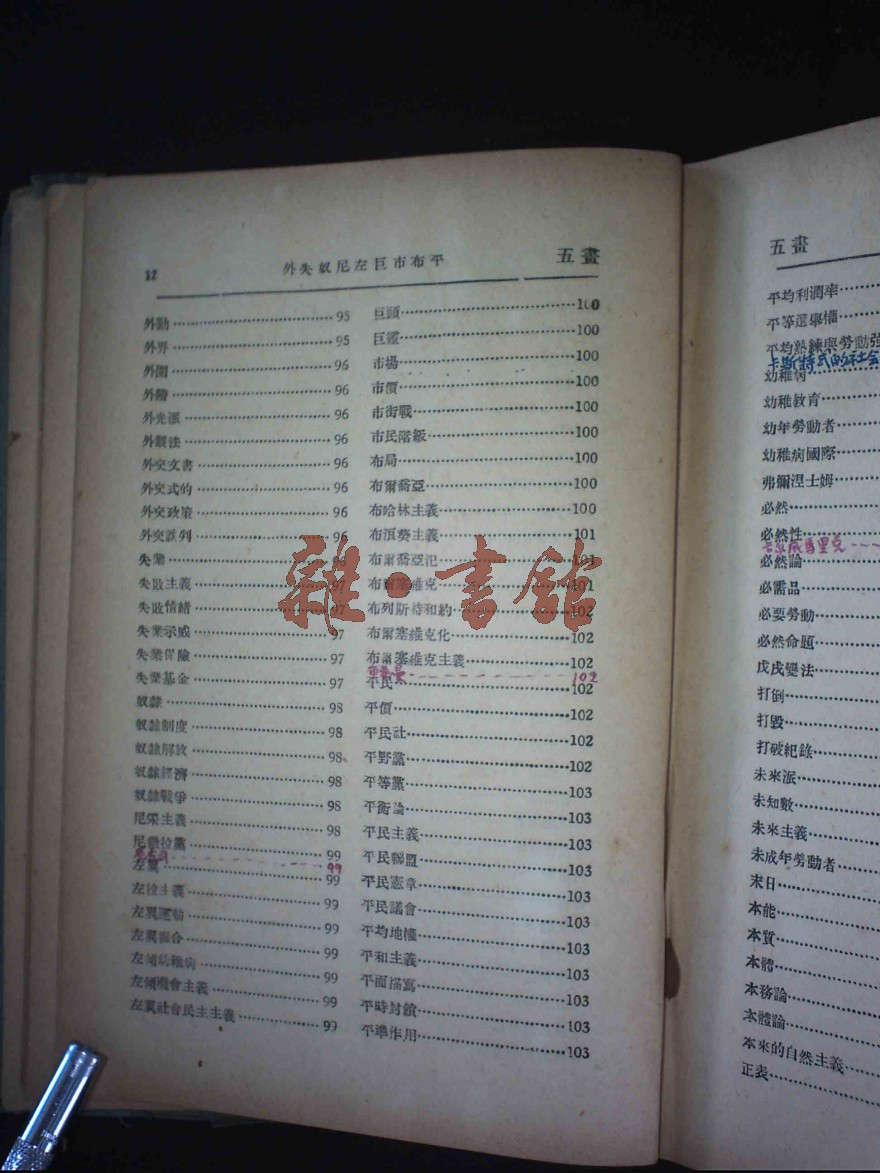 12 外失奴尼左巨市布平 五畫
外勤 95
外界 95
外間 96
外階 96
外光派 96
外觀法 96
外交文書 96
外交式的 96
外交政策 96
外交談判 96
失業
失敗主義 97
失敗情緒 97
失業示威 97
失業保險 97
失業基金 97
奴隸 98
奴隸制度 98
奴隸解放 98
奴隸經濟 98
奴隸戰爭 98
尼采主義 98
尼徹拉黨 99
99
左翼 99
左拉主義 99
左翼運動 99
左翼聯合 99
左傾幼稚病 99
左傾機會主義 99
左翼社會民主主義 99
巨頭 100
巨靈 100
市場 100
市價 100
市街戰 100
市民階級 100
布局 100
布爾喬亞 100
布哈林主義 100
布洱喬主義 101
布爾喬亞氾 101
布爾塞維克 101
布列斯特和約 102
布爾塞維克化 102
布爾塞維克主義 102
102
平民 102
平價 102
平民社 102
平野黨 102
平等黨 103
平衡論 103
平民主義 103
平民聯盟 103
平民憲章 103
平民議會 103
平均地權 103
平和主義 103
平面描寫 103
平時封鎖 103
平準作用 103
五畫
平均利潤率
平等選舉權
平均熟練與勞動強
卡斯特式的社會
幼稚病
幼稚教育
幼年勞動者
幼稚病國際
弗彌涅士姆
必然
必然性
必然論
必需品
必要勞動
必然命題
戊戌變法
打倒
打毀
打破紀錄
未來派
未知數
未來主義
未成年勞動者
末日
本能
本質
本體
本務論
本體論
本來的自然主義
正表
雜·書館